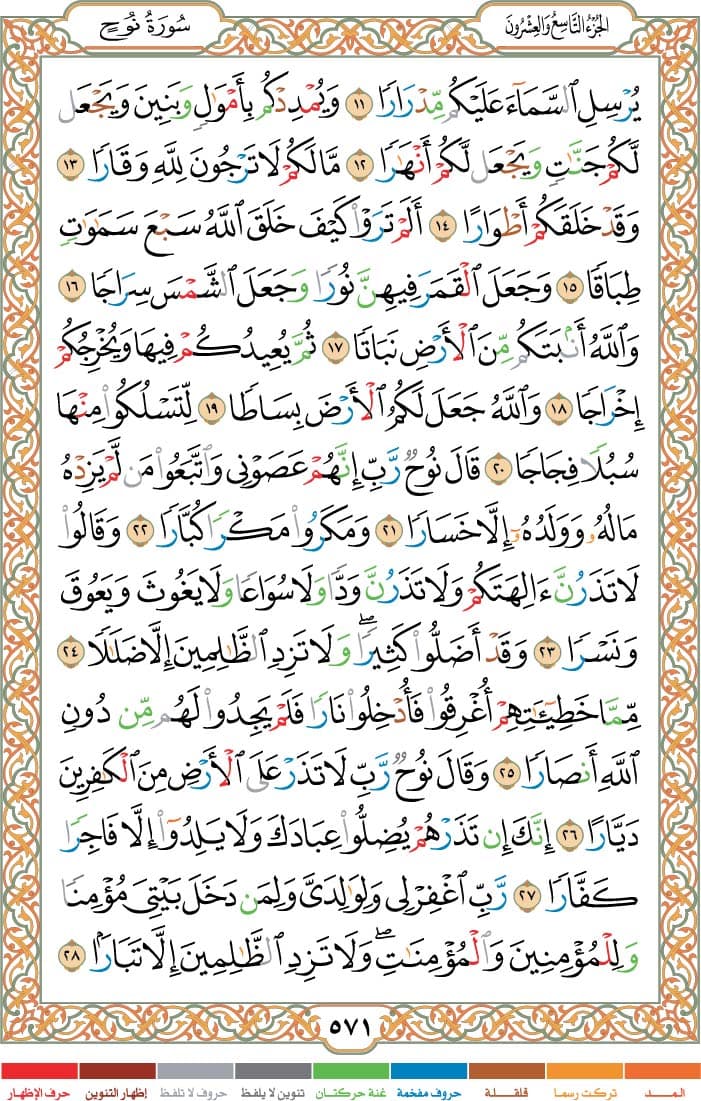 الجزء التاسع والعشرون
سورة نوح
يُرْسِلِ ٱلسَّمَآءَ عَلَيْكُم مِّدْرَارًا ١١ وَيُمْدِدْكُم بِأَمْوَٰلٍ وَبَنِينَ وَيَجْعَل
لَّكُمْ جَنَّٰتٍ وَيَجْعَل لَّكُمْ أَنْهَٰرًا ١٢ مَّا لَكُمْ لَا تَرْجُونَ لِلَّهِ وَقَارًا ١٣
وَقَدْ خَلَقَكُمْ أَطْوَارًا ١٤ أَلَمْ تَرَوْا۟ كَيْفَ خَلَقَ ٱللَّهُ سَبْعَ سَمَٰوَٰتٍ
طِبَاقًا ١٥ وَجَعَلَ ٱلْقَمَرَ فِيهِنَّ نُورًا وَجَعَلَ ٱلشَّمْسَ سِرَاجًا ١٦
وَٱللَّهُ أَنۢبَتَكُم مِّنَ ٱلْأَرْضِ نَبَاتًا ١٧ ثُمَّ يُعِيدُكُمْ فِيهَا وَيُخْرِجُكُمْ
إِخْرَاجًا ١٨ وَٱللَّهُ جَعَلَ لَكُمُ ٱلْأَرْضَ بِسَاطًا ١٩ لِّتَسْلُكُوا۟ مِنْهَا
سُبُلًا فِجَاجًا ٢٠ قَالَ نُوحٌ رَّبِّ إِنَّهُمْ عَصَوْنِى وَٱتَّبَعُوا۟ مَن لَّمْ يَزِدْهُ
مَالُهُۥ وَوَلَدُهُۥٓ إِلَّا خَسَارًا ٢١ وَمَكَرُوا۟ مَكْرًا كُبَّارًا ٢٢ وَقَالُوا۟
لَا تَذَرُنَّ ءَالِهَتَكُمْ وَلَا تَذَرُنَّ وَدًّا وَلَا سُوَاعًا وَلَا يَغُوثَ وَيَعُوقَ
وَنَسْرًا ٢٣ وَقَدْ أَضَلُّوا۟ كَثِيرًاۖ وَلَا تَزِدِ ٱلظَّٰلِمِينَ إِلَّا ضَلَٰلًا ٢٤
مِّمَّا خَطِيٓـَٰٔتِهِمْ أُغْرِقُوا۟ فَأُدْخِلُوا۟ نَارًا فَلَمْ يَجِدُوا۟ لَهُم مِّن دُونِ
ٱللَّهِ أَنصَارًا ٢٥ وَقَالَ نُوحٌ رَّبِّ لَا تَذَرْ عَلَى ٱلْأَرْضِ مِنَ ٱلْكَٰفِرِينَ
دَيَّارًا ٢٦ إِنَّكَ إِن تَذَرْهُمْ يُضِلُّوا۟ عِبَادَكَ وَلَا يَلِدُوٓا۟ إِلَّا فَاجِرًا
كَفَّارًا ٢٧ رَّبِّ ٱغْفِرْ لِى وَلِوَٰلِدَىَّ وَلِمَن دَخَلَ بَيْتِىَ مُؤْمِنًا
وَلِلْمُؤْمِنِينَ وَٱلْمُؤْمِنَٰتِۖ وَلَا تَزِدِ ٱلظَّٰلِمِينَ إِلَّا تَبَارًۢا ٢٨
٥٧١
المــــد تركت رسما قلقـــلة حروف مفخمة غنة حركتـان تنوين لا يلفظ حروف لا تلفظ إظهار التنوين حرف الإظهار